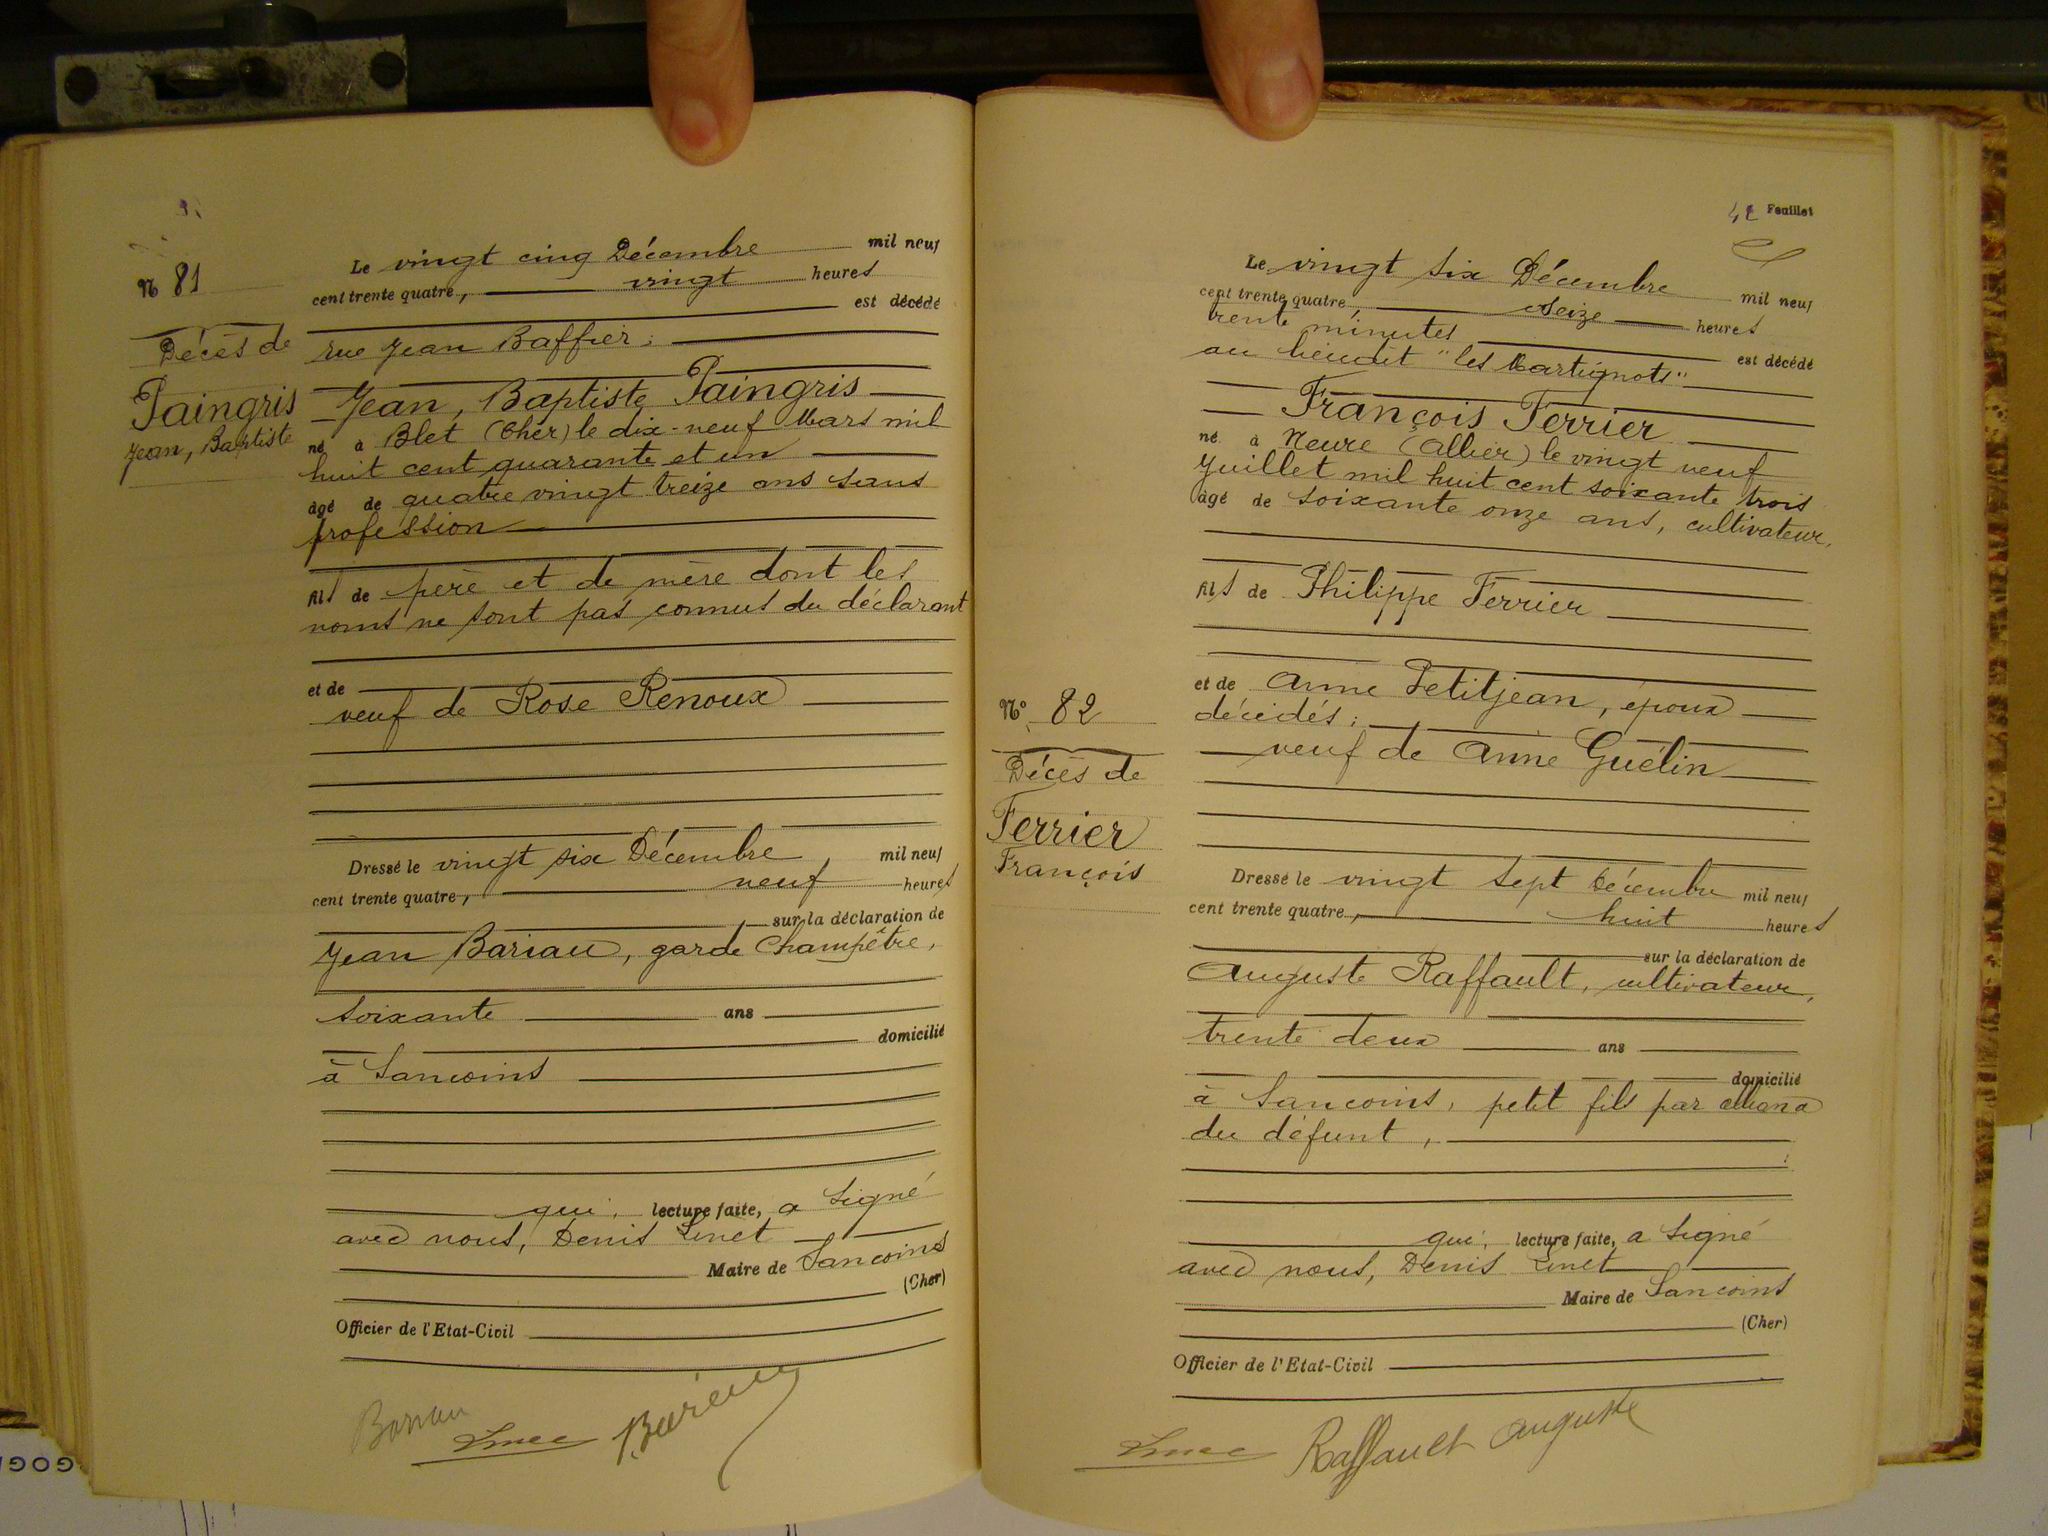 N 81
Décès de
Paingris
Jean, Baptiste
Le vingt cinq Décembre mil neuf
cent trente quatre, vingt heures
est décédé
rue Jean Baffier;
Jean, Baptiste Paingris
né à Blet (Cher) le dix-neuf Mars mil
huit cent quarante et un
âgé de quatre vingt treize ans sans
profession
fils de père et de mère dont les
noms ne sont pas connus du déclarant
et de
veuf de Rose Renoux
Dressé le vingt six Décembre, mil neuf
cent trente quatre, neuf heures
sur la déclaration de
Jean Bariau, garde Champêtre,
soixante ans
domicilié
à Sancoins
qui, lecture faite, a signé
avec nous, Denis Linet
Maire de Sancoins
(Cher)
Officier de l'Etat-Civil
Bariau
42 Feuillet
N° 82
Décès de
Ferrier
François
Le vingt six Décembre mil neuf
cent trente quatre, seize heures
trente minutes
est décédé
au lieudit "les Martignots"
François Ferrier
né à Neure (Allier) le vingt neuf
Juillet mil huit cent soixante trois
âgé de soixante onze ans, cultivateur,
fils de Philippe Ferrier
et de Anne Petitjean, époux
décédés;
veuf de Anne Guélin
Dressé le vingt sept Décembre mil neuf
cent trente quatre, huit heures
sur la déclaration de
Auguste Raffault, cultivateur,
trente deux ans
domicilié
à Sancoins, petit fils par alliance
du défunt,
qui, lecture faite, a signé
avec nous, Denis Linet
Maire de Sancoins
(Cher)
Officier de l'Etat-Civil
Raffault Auguste